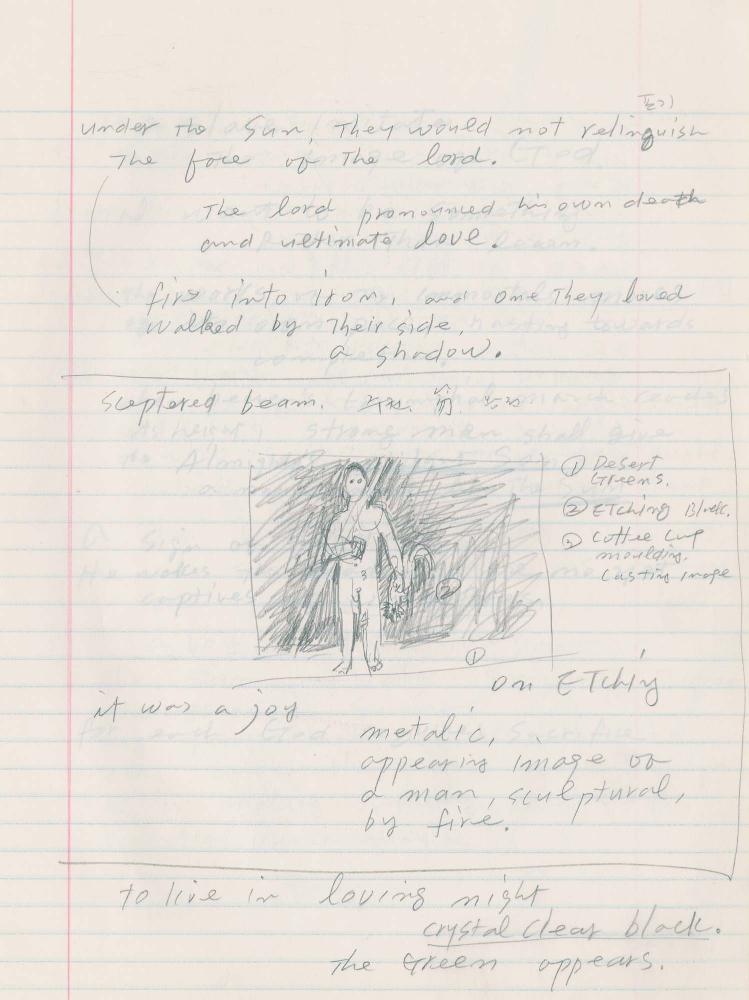 포기
under The Sun, They would not relinguish
The face of The lord.
The lord pronounced his own death
and ultimate love.
fire into iron, and one They loved
walked by Their side,
a shadow.
sceptered beam.
① Desert
Greens.
② ETching Black.
③ Coffee Cup
moulding.
Casting image
3
②
①
on ETching
it was a joy
metalic,
appearing image of
a man, sculptural,
by fire.
to live in loving night
crystal clear black.
The Green appears.